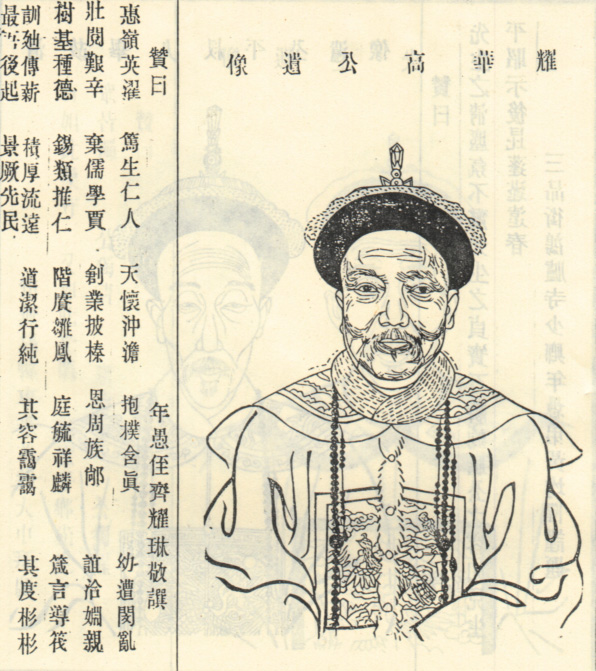 耀華高公遺像
贊曰 年愚侄齊耀琳敬譔
惠嶺英濯 篤生仁人 天懷沖澹 抱撲含眞 幼遭閔亂
壯閱艱辛 棄儒學賈 創業披榛 恩周族鄰 誼洽婣親
樹基種德 錫類推仁 階賡雛鳳 庭毓祥麟 箴言導筏
訓廸傳薪 積厚流達 道潔行純 其容靄靄 其度彬彬
後起 景厥先民